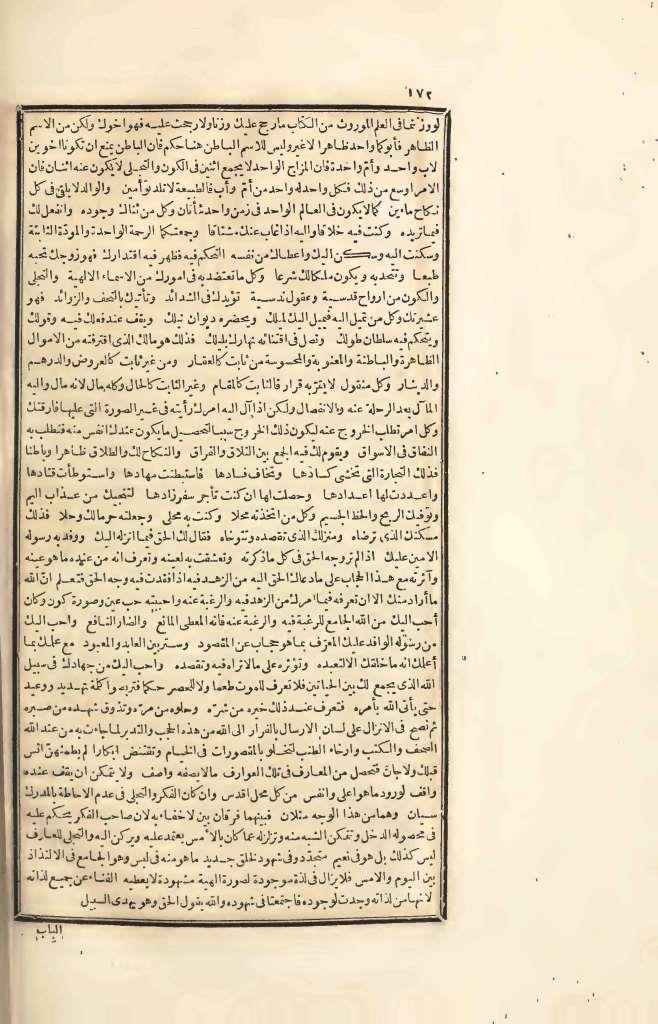 ١٧٢
لو وزنتما في العلم الموروث من الكتاب ما رجح عليك وزنا ولا رجحت عليه فهو اخوك ولكن من الاسم
الظاهر فأبوكما واحد ظاهرا لا غير وليس للاسم الباطن هنا حكم فان الباطن يمنع ان تكونا اخوين
لاب واحد وأم واحدة فان المزاج الواحد لا يجمع اثنين في الكون والتجلي لا يكون عنه اثنان فان
الامر اوسع من ذلك فكل واحد له واحد من أم وأب فالطبيعة لا تلد توأمين والوالد لا يلقى في كل
نكاح ماءين كما لا يكون في العالم الواحد في زمن واحد شأنان وكل من ثناك وجوده وانفعل لك
فيما تريده وكنت فيه خلاقا واليه اذا غاب عنك مشتاقا وجمعتكما الرحمة الواحدة والمودّة الثابتة
وسكنت اليه وسكن اليك واعطاك من نفسه التحكم فيه فظهر فيه اقتدارك فهو زوجك تحبه
طبعا وتتحد به ويكون ملكا لك شرعا وكل ما تعتضد به في امورك من الاسماء الالهية والتجلي
والكون من ارواح قدسية وعقول ندسية تؤيدك في الشدائد وتأتيك بالتحف والزوائد فهو
عشيرتك وكل من تميل اليه فيميل اليك لميلك ويحضره ديوان نيلك ويقف عند فعلك فيه وقولك
ويتحكم فيه سلطان طولك وتصل في اقتنائه نهارك بليلك فذلك هو مالك الذي اقترفته من الاموال
الظاهرة والباطنة والمعنوية والمحسوسة من ثابت كالعقار ومن غير ثابت كالعروض والدرهم
والدينار وكل منقول لا يقر به قرار فالثابت كالمقام وغير الثابت كالحال وكله مال لانه مال واليه
المآل بعد الرحلة عنه والانفصال ولكن اذا آل اليه امرك رأيته في غير الصورة التي عليها فارقتك
وكل امر تطلب الخروج عنه ليكون ذلك الخروج سببا لتحصيل ما يكون عندك انفس منه فتطلب به
النفاق في الاسواق ويقوم لك فيه الجمع بين التلاق والفراق والنكاح لك والطلاق ظاهرا وباطنا
فذلك التجارة التي تخشى كسادها وتخاف فسادها فاستبطنت مهادها واستوطأت قتادها
واعددت لها اعدادها وحصلت لها ان كنت تأجر سفر زادها لتنجيك من عذاب اليم
وتوفيك الربح والحظ الجسيم وكل من اتخذته محلا وكنت به محلى وجعلته حرما لك وحلا فذلك
مسكنك الذي ترضاه ومنزلك الذي تقصده وتتوخاه فقال لك الحق فيما انزله اليك ووفد به رسوله
الامين عليك اذا لم تر وجه الحق في كل ما ذكرته وتعشقت به لعينه وتعرف انه من عنده ما هو عينه
وآثرته مع هذا الحجاب على ما دعاك الحق اليه من الزهد فيه اذا فقدت فيه وجه الحق فتعلم انّ الله
ما أراد منك الا ان تعرفه فيما امرك من الزهد فيه والرغبة عنه واحببته حب عين وصورة كون وكان
أحب اليك من الله الجامع للرغبة فيه والرغبة عنه فانه المعطي المانع والضار النافع واحب اليك
من رسوله الوافد عليك المعرّف بما هو حجاب عن المقصود وستر بين العابد والمعبود مع علمك بما
أعلمك انه ما خلقك الا لتعبده وتؤثره على ما لا تراه فيه وتقصده واحب اليك من جهادك في سبيل
الله الذي يجمع لك بين الحياتين فلا تعرف للموت طعما ولا للحصر حكما فتربصوا كلمة تهديد ووعيد
حتى يأتي الله بأمره فتعرف عند ذلك خيره من شرّه وحلوه من مرّه وتذوق شهده من صبره
ثم نصح في الانزال على لسان الارسال بالفرار الى الله من هذه الحجب والتدبر لما جاءت به من عند الله
الصحف والكتب وارخاء الطنب لتخلو بالمقصورات في الخيام وتفتض ابكارا لم يطمثهنّ انس
قبلك ولا جان فتحصل من المعارف في تلك العوارف ما لا يصفه واصف ولا يتمكن ان يقف عنده
واقف لورود ما هو اعلى وانفس من كل محل اقدس وان كان الفكر والتجلي في عدم الاحاطة بالمدرك
سيان وهما من هذا الوجه مثلان فبينهما فرقان بين لا خفاء به لان صاحب الفكر يحكم عليه
في محصوله الدخل وتتمكن الشبه منه وتزلزله عما كان بالأمس يعتمد عليه ويركن اليه والتجلي للعارف
ليس كذلك بل هو في نعيم متجدّد وفي شهود الخلق جديد ما هو منه في لبس وهو الجامع في الالتذاذ
بين اليوم والامس فلا يزال في لذة موجودة لصورة الهية مشهودة لا يعطيه الفناء عن جميع لذاته
لانها من لذاته وجدت لوجوده فاجتمعتا في شهوده والله يقول الحق وهو يهدي السبيل
الباب